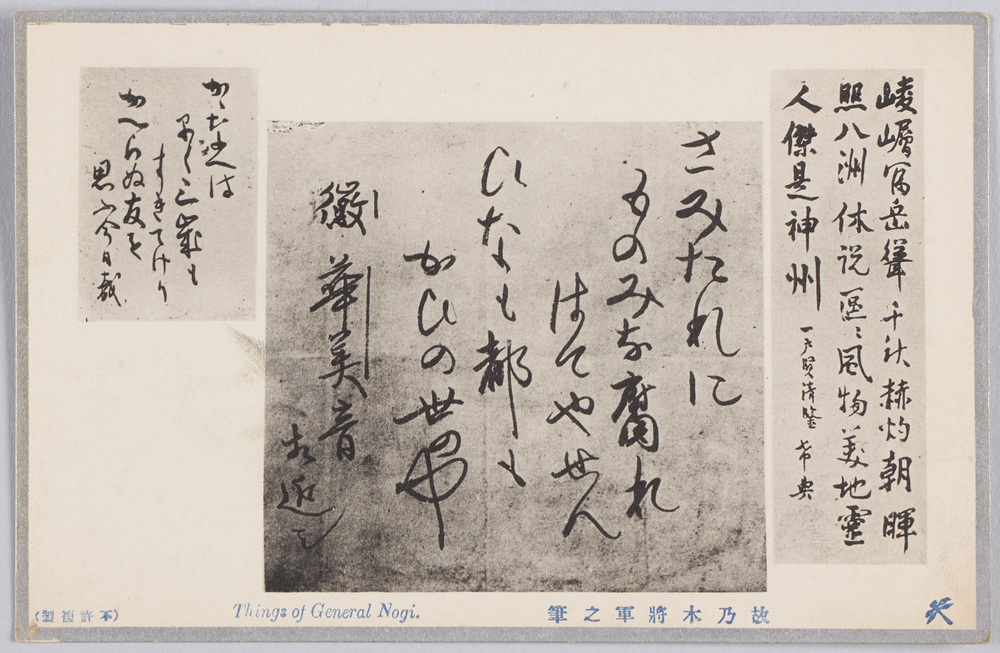 崚嶒冨岳聳千秋赫灼朝暉
照八洲休説區〻風物美地靈
人傑是神州 一戸賢清鑒 希典
さみたれに
ものみな腐れ
はてやせん
ひなも都も
かひの世の中
黴華美音
は
早く三歳も
すきてけり
かへらぬ友を
思ふ今日哉
故乃木將軍之筆
Things of General Nogi.
(不許複製)